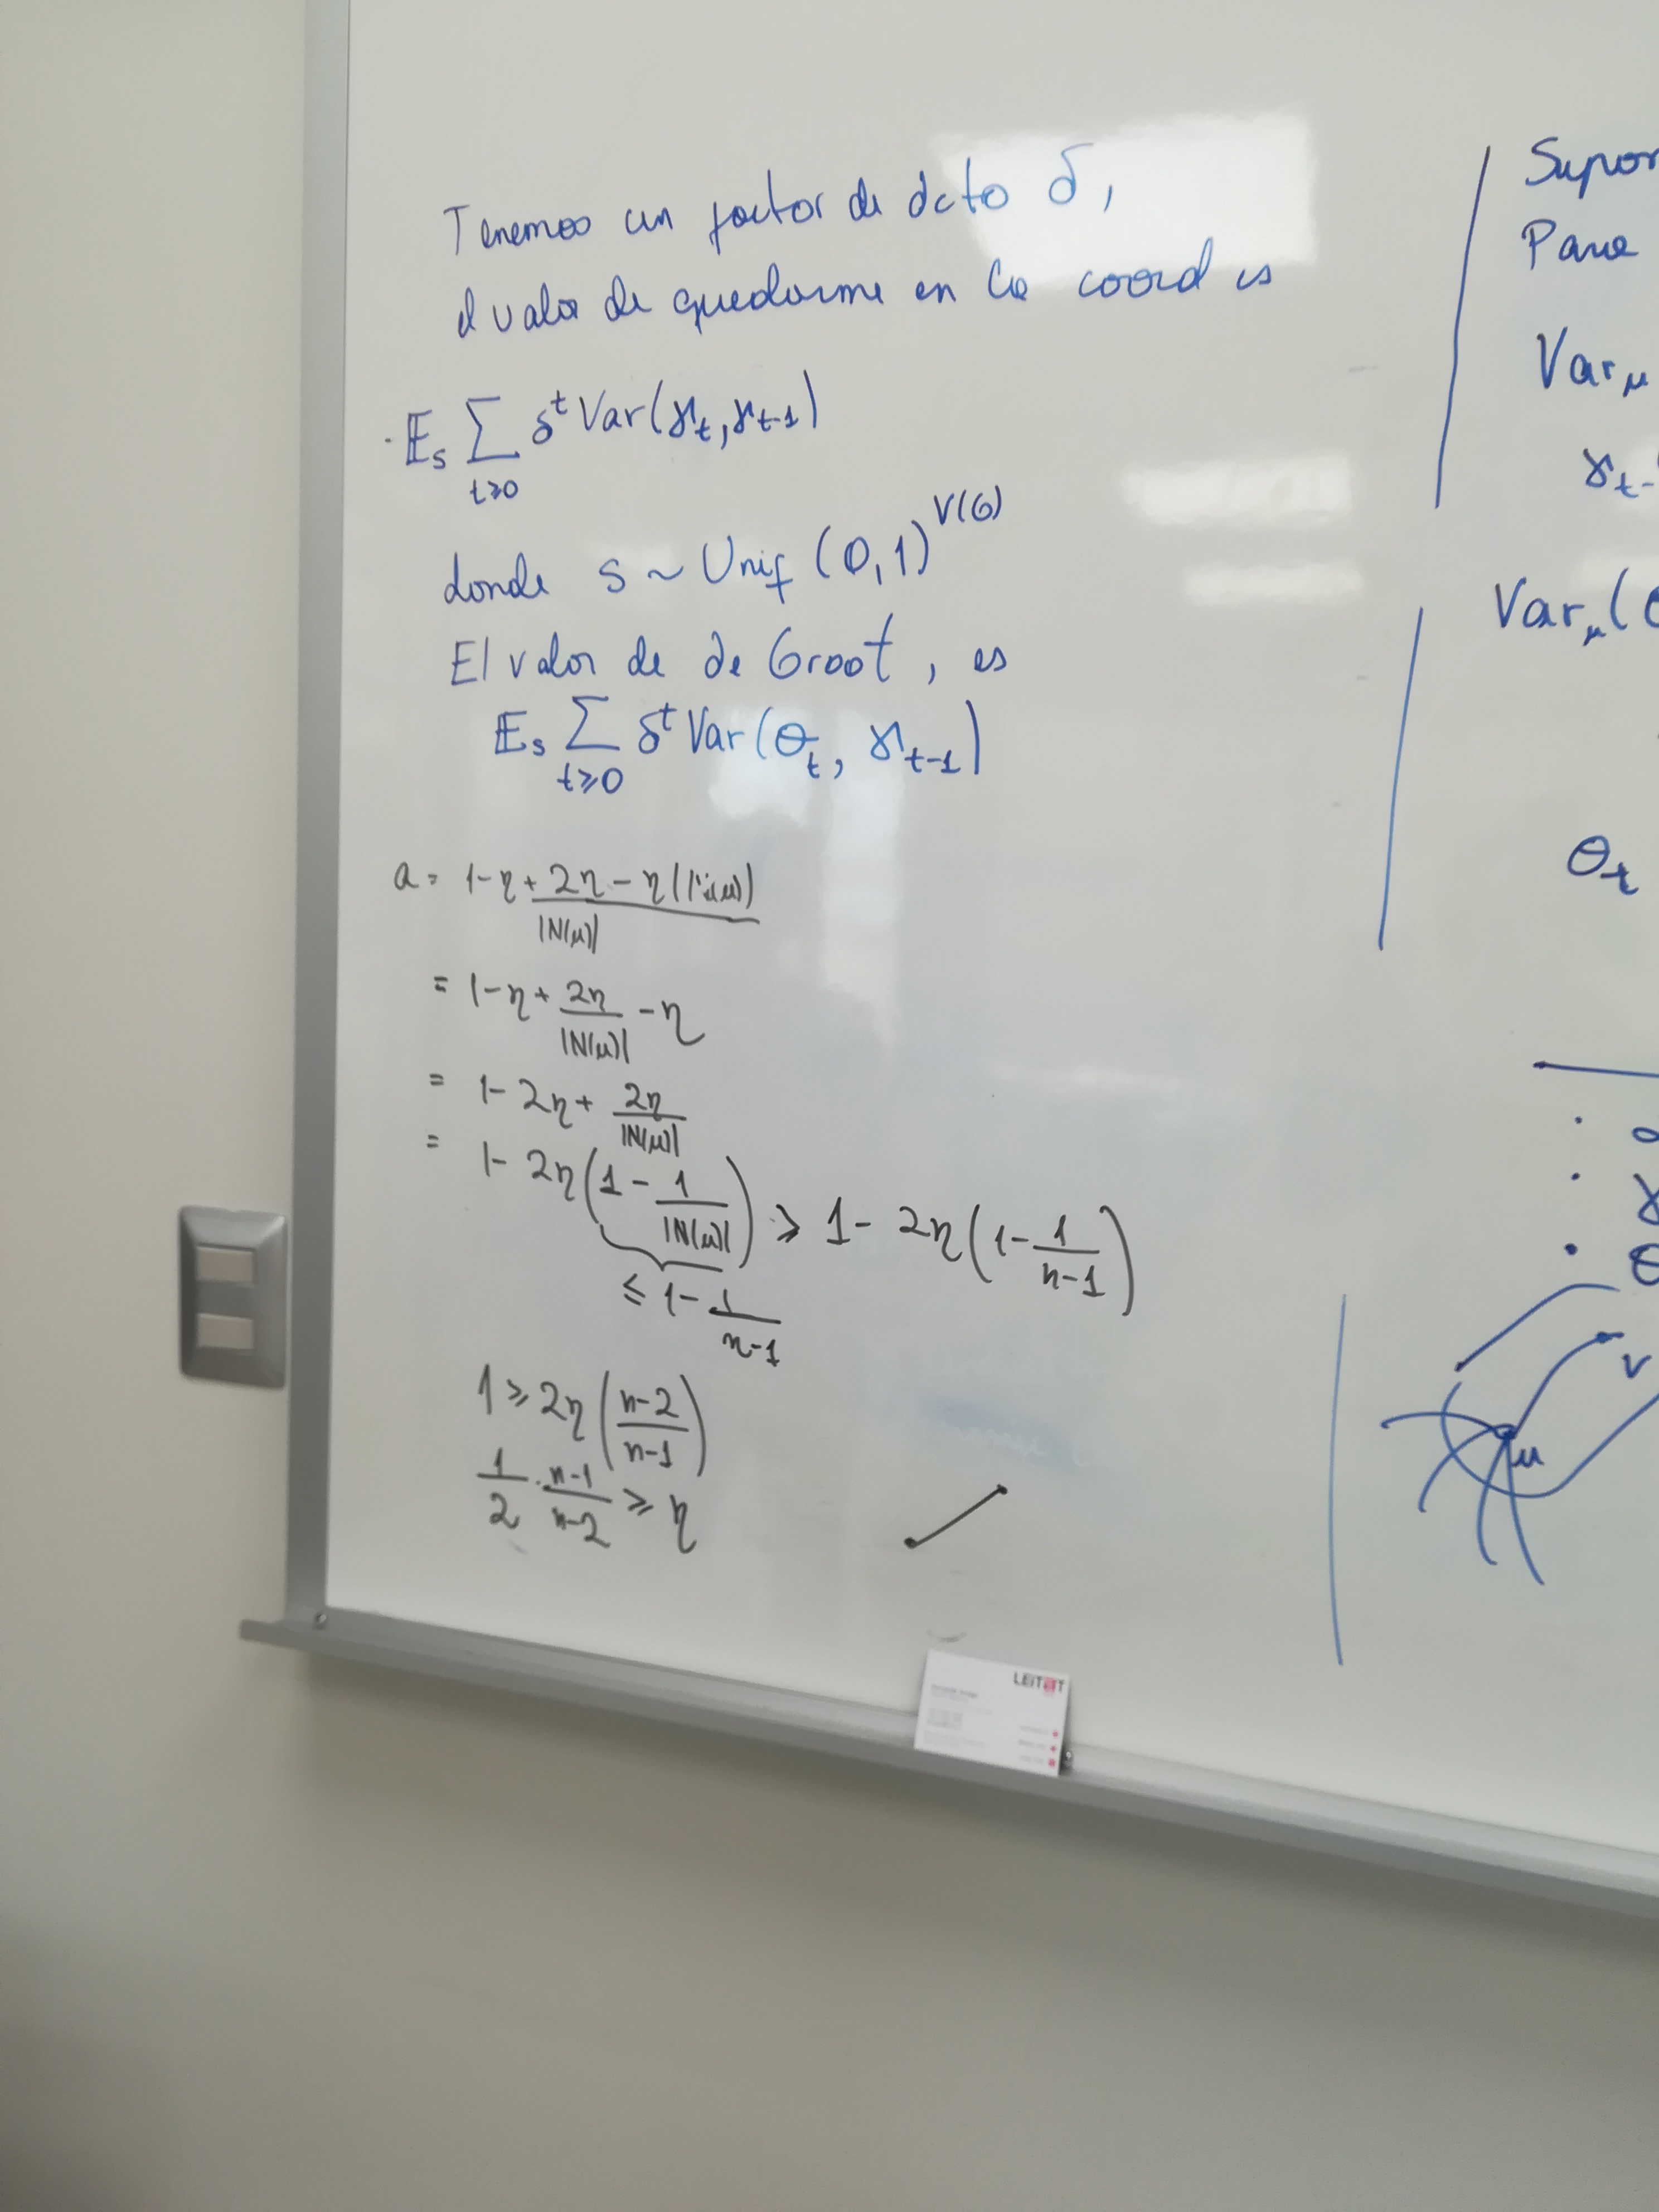 Tenemos un factor de dcto δ,
el valor de quedarme en la coord es
𝔼_s ∑_{t≥0} δ^t Var(γ_t, γ_{t-1})
donde s ~ Unif (0,1)^{V(G)}
El valor de de Groot, es
𝔼_s ∑_{t≥0} δ^t Var(θ_t, γ_{t-1})
a = 1-η + (2η - η()) / |N(μ)|
= 1-η + 2η/|N(μ)| - η
= 1- 2η + 2η/|N(μ)|
= 1- 2η(1 - 1/|N(μ)|) ≥ 1- 2η(1 - 1/(n-1))
≤ 1 - 1/(n-1)
1 ≥ 2η((n-2)/(n-1))
1/2 · (n-1)/(n-2) ≥ η
Para
Var_μ
γ_{t-
Var_μ(
θ_t
γ
θ
v
u
LEITAT